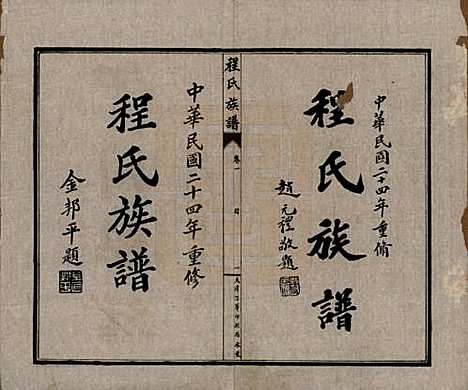 中華民國二十四年重脩
程氏族譜
趙元禮敬題
程氏族譜
卷一
目
中華民國二十四年重修
程氏族譜
金邦平題